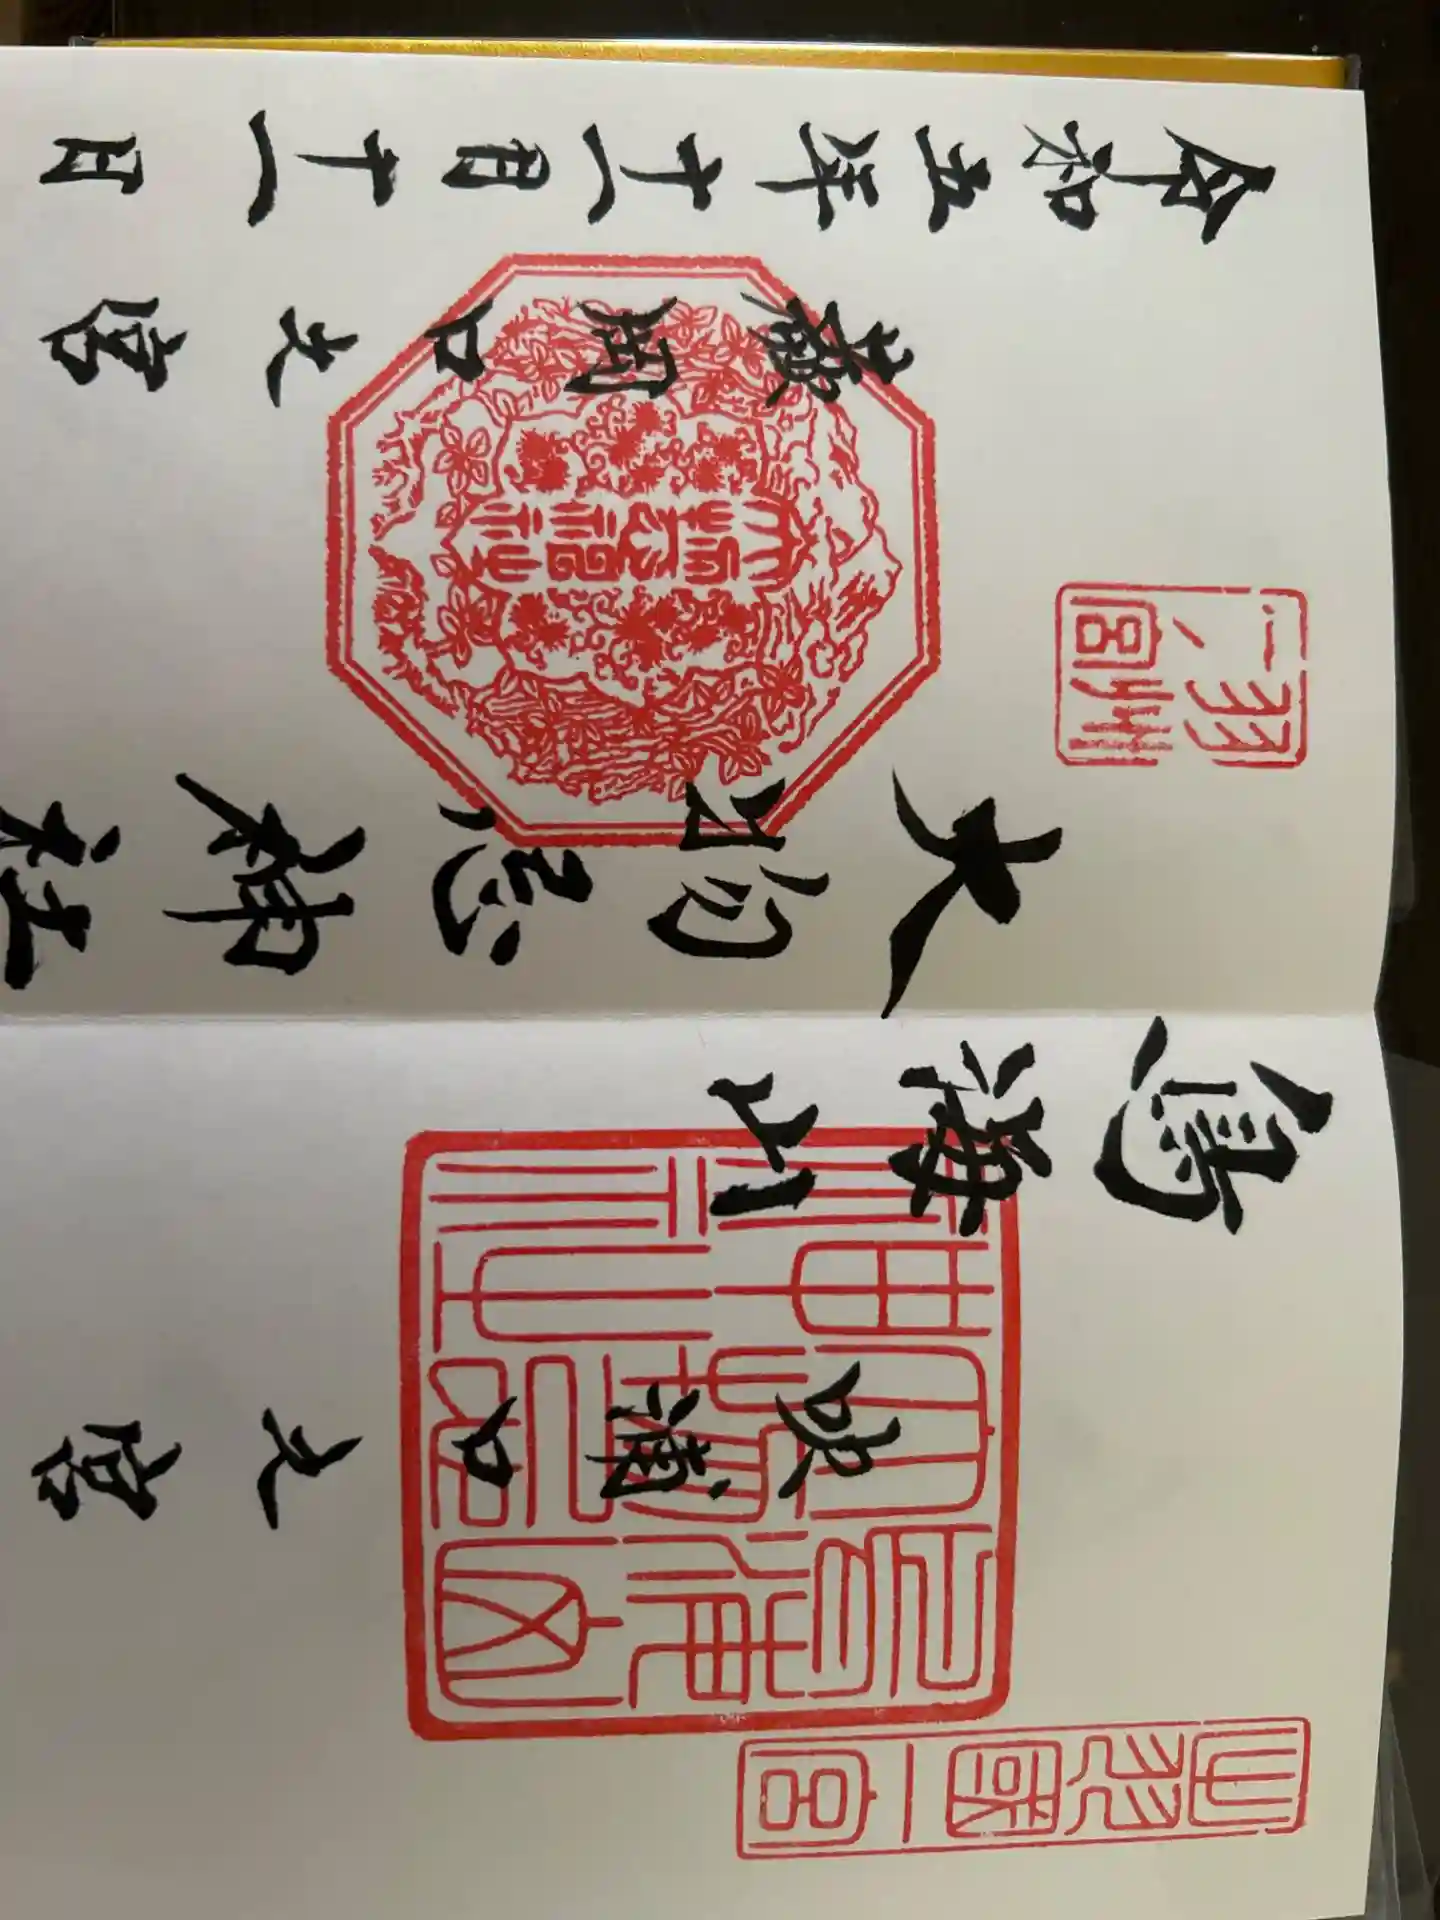 出羽國一宮
吹浦口之宮
鳥海山
大物忌神社
羽州一ノ宮
蕨岡口之宮
令和五年十一月十一日